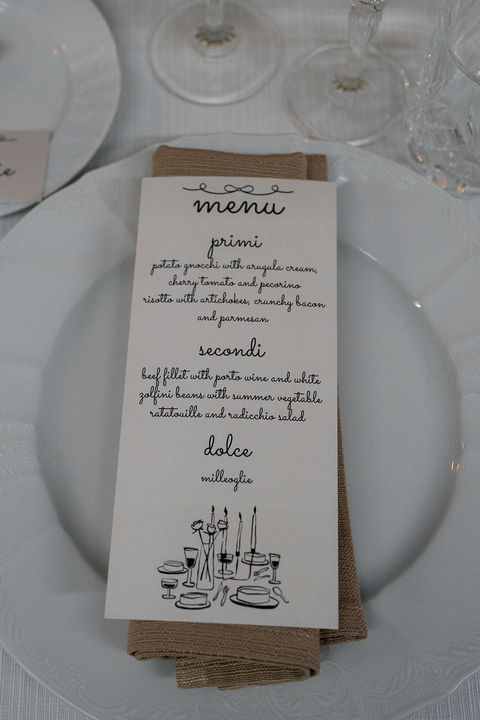 menu
primi
potato gnocchi with arugula cream,
cherry tomato and pecorino
risotto with artichokes, crunchy bacon
and parmesan
secondi
beef fillet with porto wine and white
zolfini beans with summer vegetable
ratatouille and radicchio salad
dolce
milleoglie